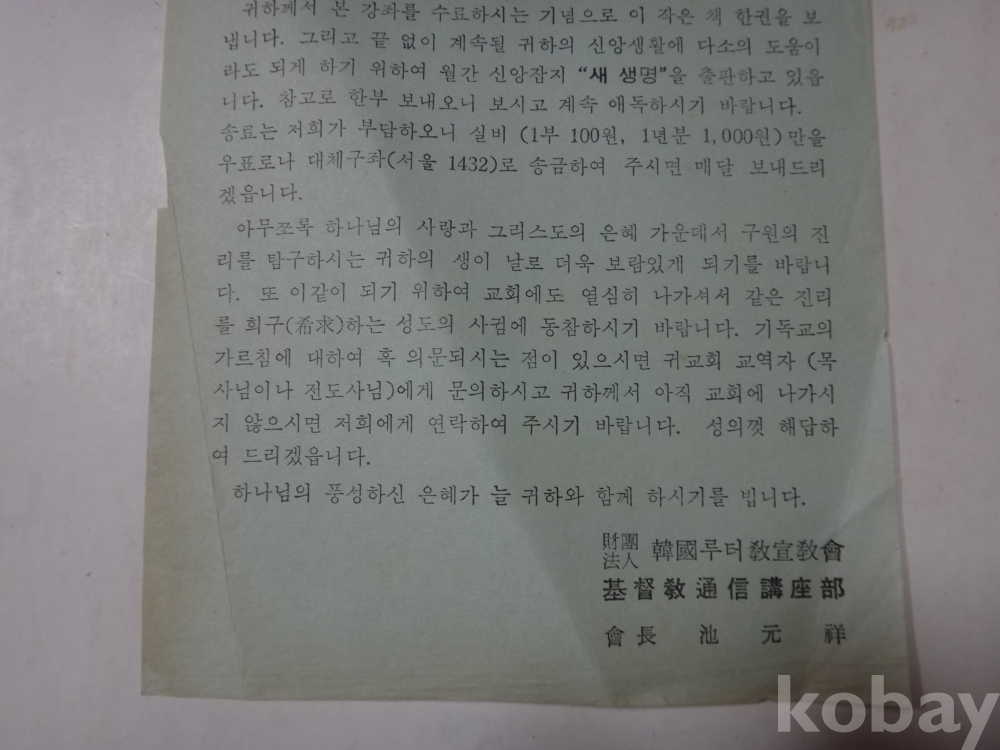 귀하께서 본 강좌를 수료하시는 기념으로 이 작은 책 한권을 보
냅니다. 그리고 끝 없이 계속될 귀하의 신앙생활에 다소의 도움이
라도 되게 하기 위하여 월간 신앙잡지 “새 생명”을 출판하고 있읍
니다. 참고로 한부 보내오니 보시고 계속 애독하시기 바랍니다.
송료는 저희가 부담하오니 실비 (1부 100원, 1년분 1,000원)만을
우표로나 대체구좌(서울 1432)로 송금하여 주시면 매달 보내드리
겠읍니다.
아무쪼록 하나님의 사랑과 그리스도의 은혜 가운데서 구원의 진
리를 탐구하시는 귀하의 생이 날로 더욱 보람있게 되기를 바랍니
다. 또 이같이 되기 위하여 교회에도 열심히 나가셔서 같은 진리
를 희구(希求)하는 성도의 사귐에 동참하시기 바랍니다. 기독교의
가르침에 대하여 혹 의문되시는 점이 있으시면 귀교회 교역자 (목
사님이나 전도사님)에게 문의하시고 귀하께서 아직 교회에 나가시
지 않으시면 저희에게 연락하여 주시기 바랍니다. 성의껏 해답하
여 드리겠읍니다.
하나님의 풍성하신 은혜가 늘 귀하와 함께 하시기를 빕니다.
財團法人 韓國루터敎宣敎會
基督敎通信講座部
會長 池元祥
kobay